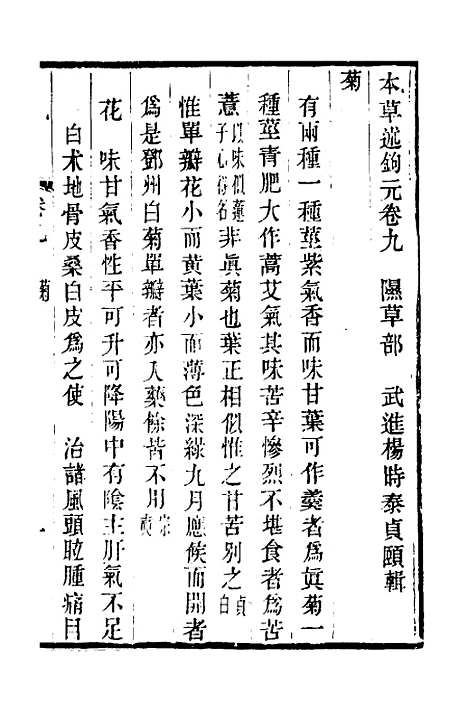 本草述鉤元卷九　隰草部　武進楊時泰貞頤輯
菊
有兩種一種莖紫氣香而味甘葉可作羹者為眞菊一
種莖青肥大作蒿艾氣其味苦辛慘烈不堪食者為苦
薏以味似蓮子心得名非眞菊也葉正相似惟之甘苦別之貞白
惟單瓣花小而黄葉小而薄色深綠九月應候而開者
為是鄧州白菊單瓣者亦入藥餘皆不用宗奭
花　味甘氣香性平可升可降陽中有陰主肝氣不足
白术地骨皮桑白皮為之使　治諸風頭眩腫痛目
菊